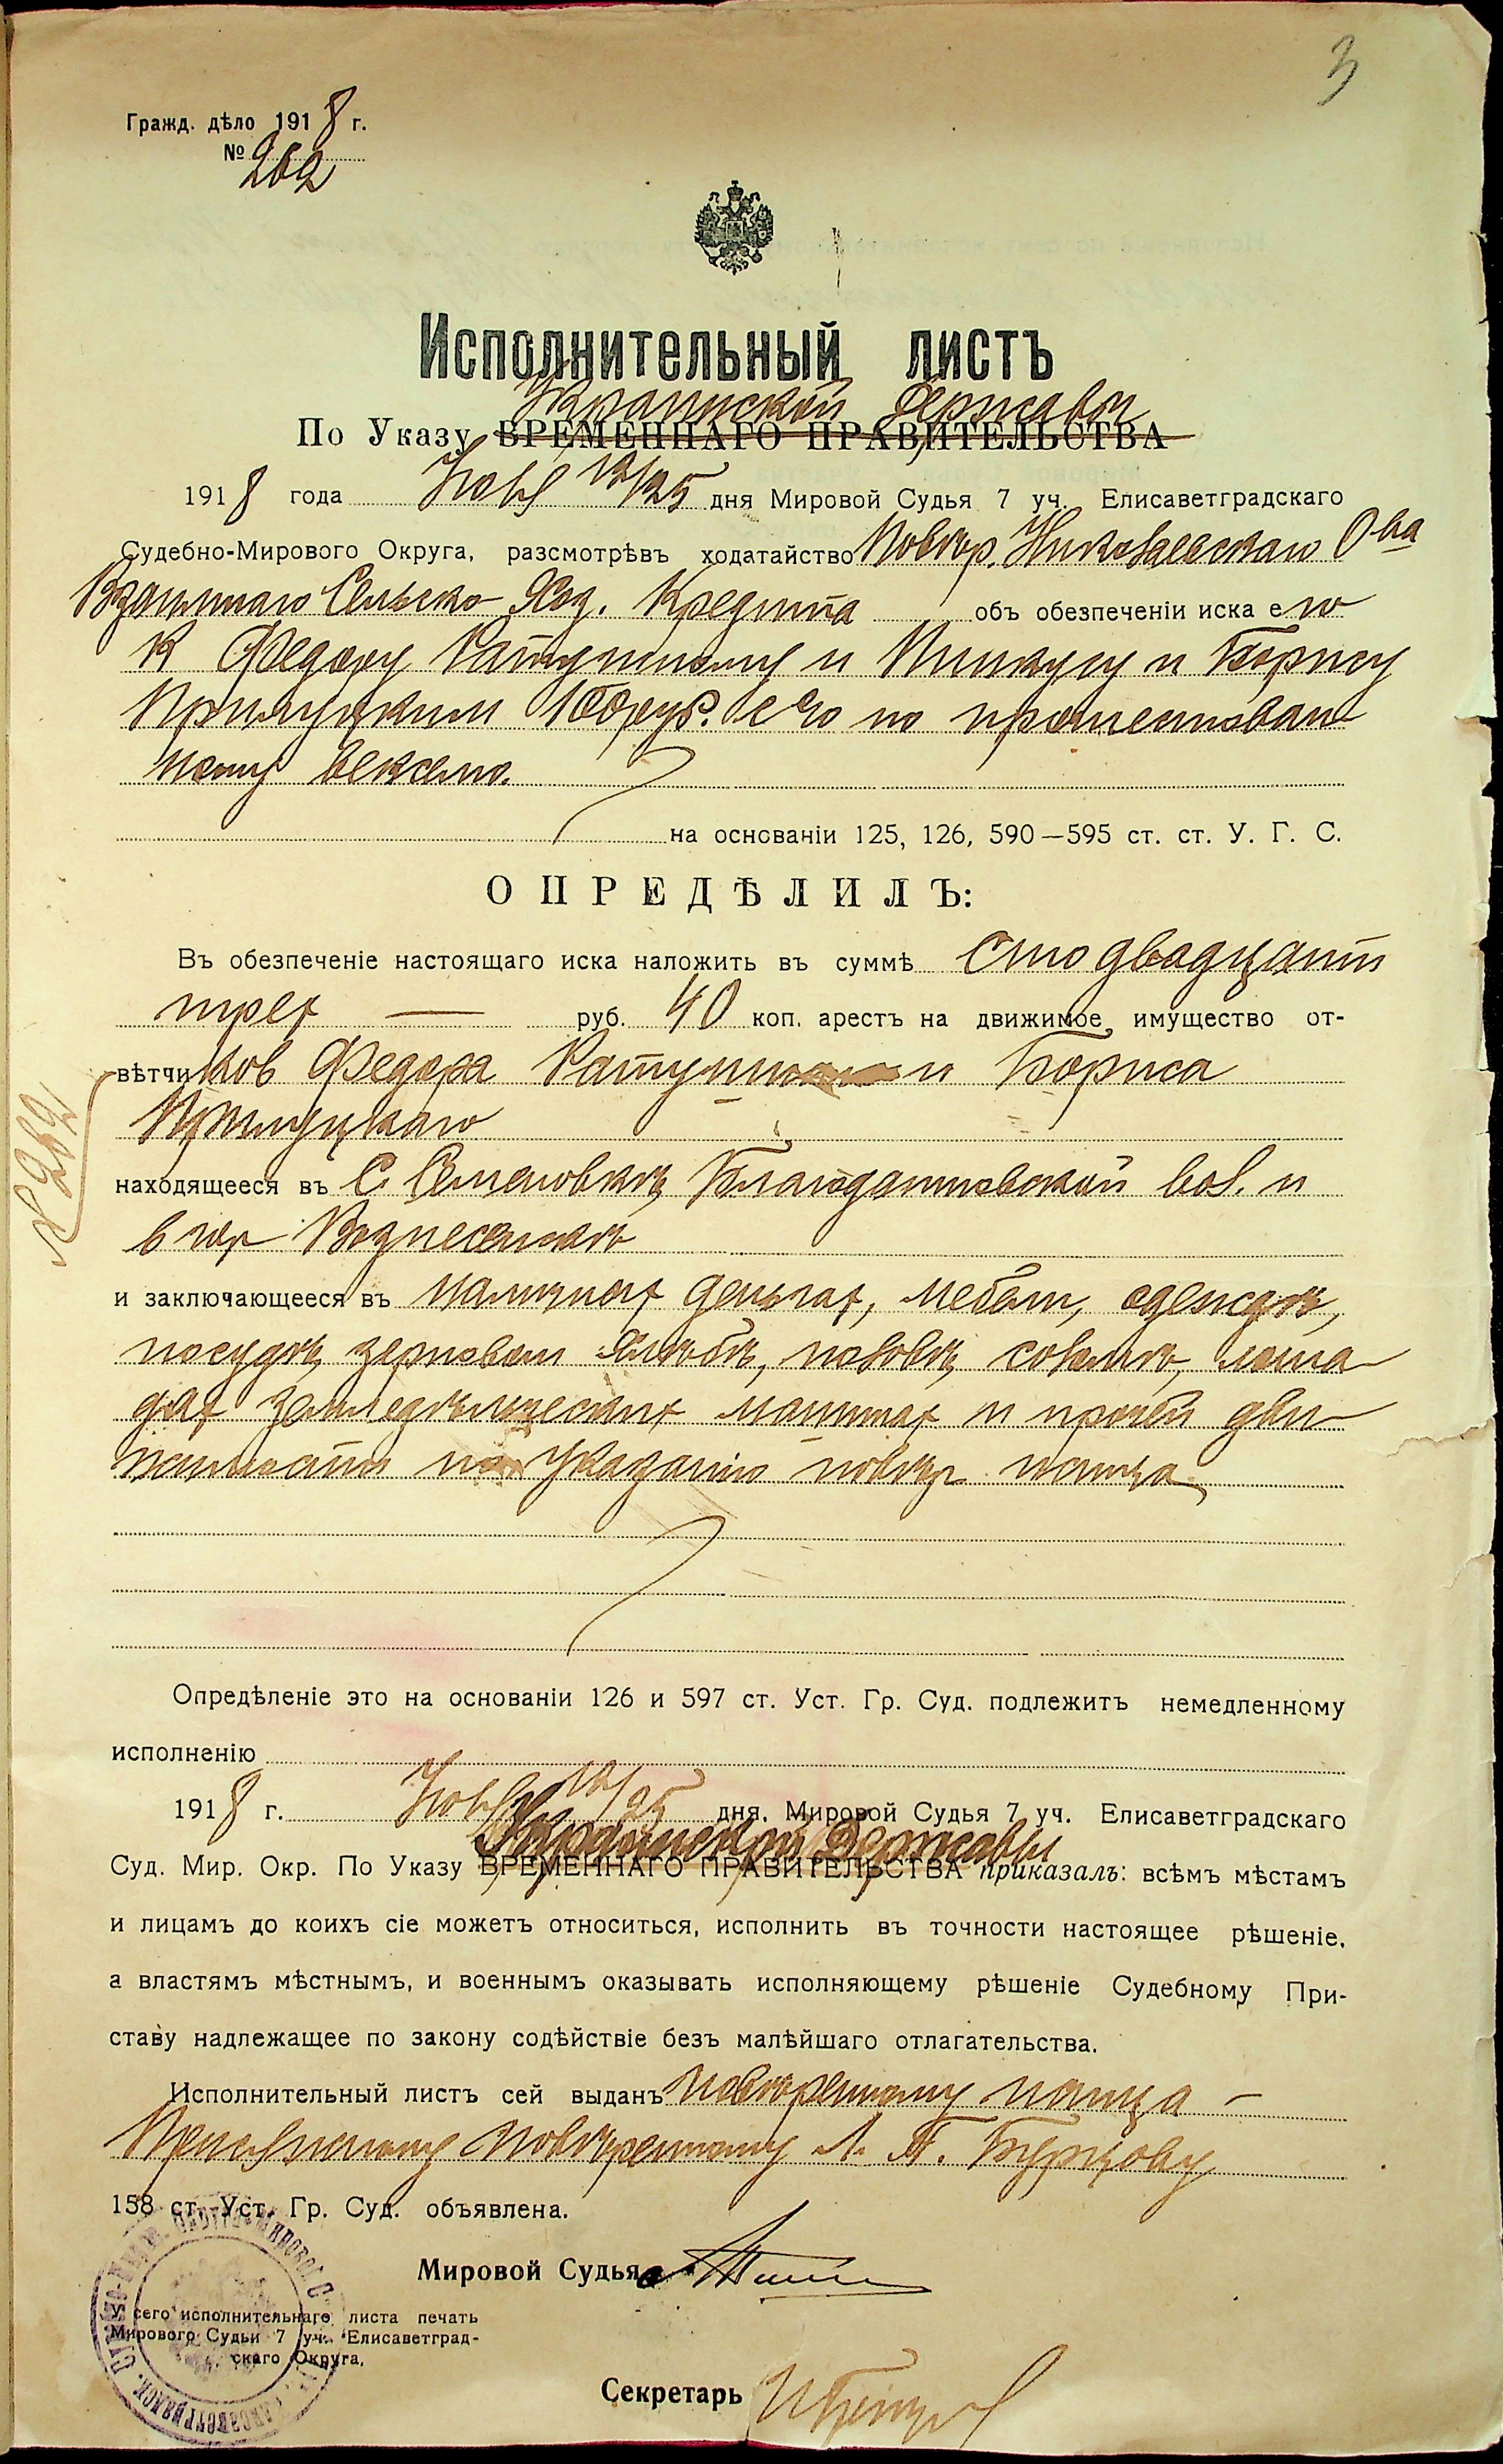 3
Гражд. дѣло 1918 г.
№ 262
Исполнительный листъ
Украинской Державы
По Указу ВРЕМЕННАГО ПРАВИТЕЛЬСТВА
1918 года Ноябр 12/25 дня Мировой Судья 7 уч. Елисаветградскаго
Судебно-Мирового Округа, разсмотрѣвъ ходатайство повѣр. Николаевскаго О-ва
Взаимнаго Сельско-Хоз. Кредита объ обезпеченіи иска его
к Федору Ратушному и Пинкусу и Борису
Прилуцким 100 руб. с % по протестован
ному векселю.
на основаніи 125, 126, 590—595 ст. ст. У. Г. С.
ОПРЕДѢЛИЛЪ:
Въ обезпеченіе настоящаго иска наложить въ суммѣ Сто двадцать
трех — руб. 40 коп. арестъ на движимое имущество от-
вѣтчиков Федора и Бориса
Прилуцкаго
№ 262
находящееся въ с. Семеновкѣ Благодатновской вол. и
в гор Вознесенскѣ
и заключающееся въ наличных деньгах, мебели, одеждѣ,
посудѣ, зерновом хлѣбѣ, половѣ, соломѣ, лоша
дях земледѣльческих машинах и прочей дви
жимости по указанію повѣр истца
Опредѣленіе это на основаніи 126 и 597 ст. Уст. Гр. Суд. подлежитъ немедленному
исполненію
1918 г. Ноябр 12/25 дня, Мировой Судья 7 уч. Елисаветградскаго
Украинской Державы
Суд. Мир. Окр. По Указу ВРЕМЕННАГО ПРАВИТЕЛЬСТВА приказалъ: всѣмъ мѣстамъ
и лицамъ до коихъ сіе можетъ относиться, исполнить въ точности настоящее рѣшеніе,
а властямъ мѣстнымъ, и военнымъ оказывать исполняющему рѣшеніе Судебному При-
ставу надлежащее по закону содѣйствіе безъ малѣйшаго отлагательства.
Исполнительный листъ сей выданъ повѣренному истца —
Присяжному повѣренному Л. П. Бурцову
158 ст. Уст. Гр. Суд. объявлена.
Мировой Судья
У сего исполнительнаго листа печать
Мирового Судьи 7 уч. Елисаветград-
скаго Округа.
Секретарь